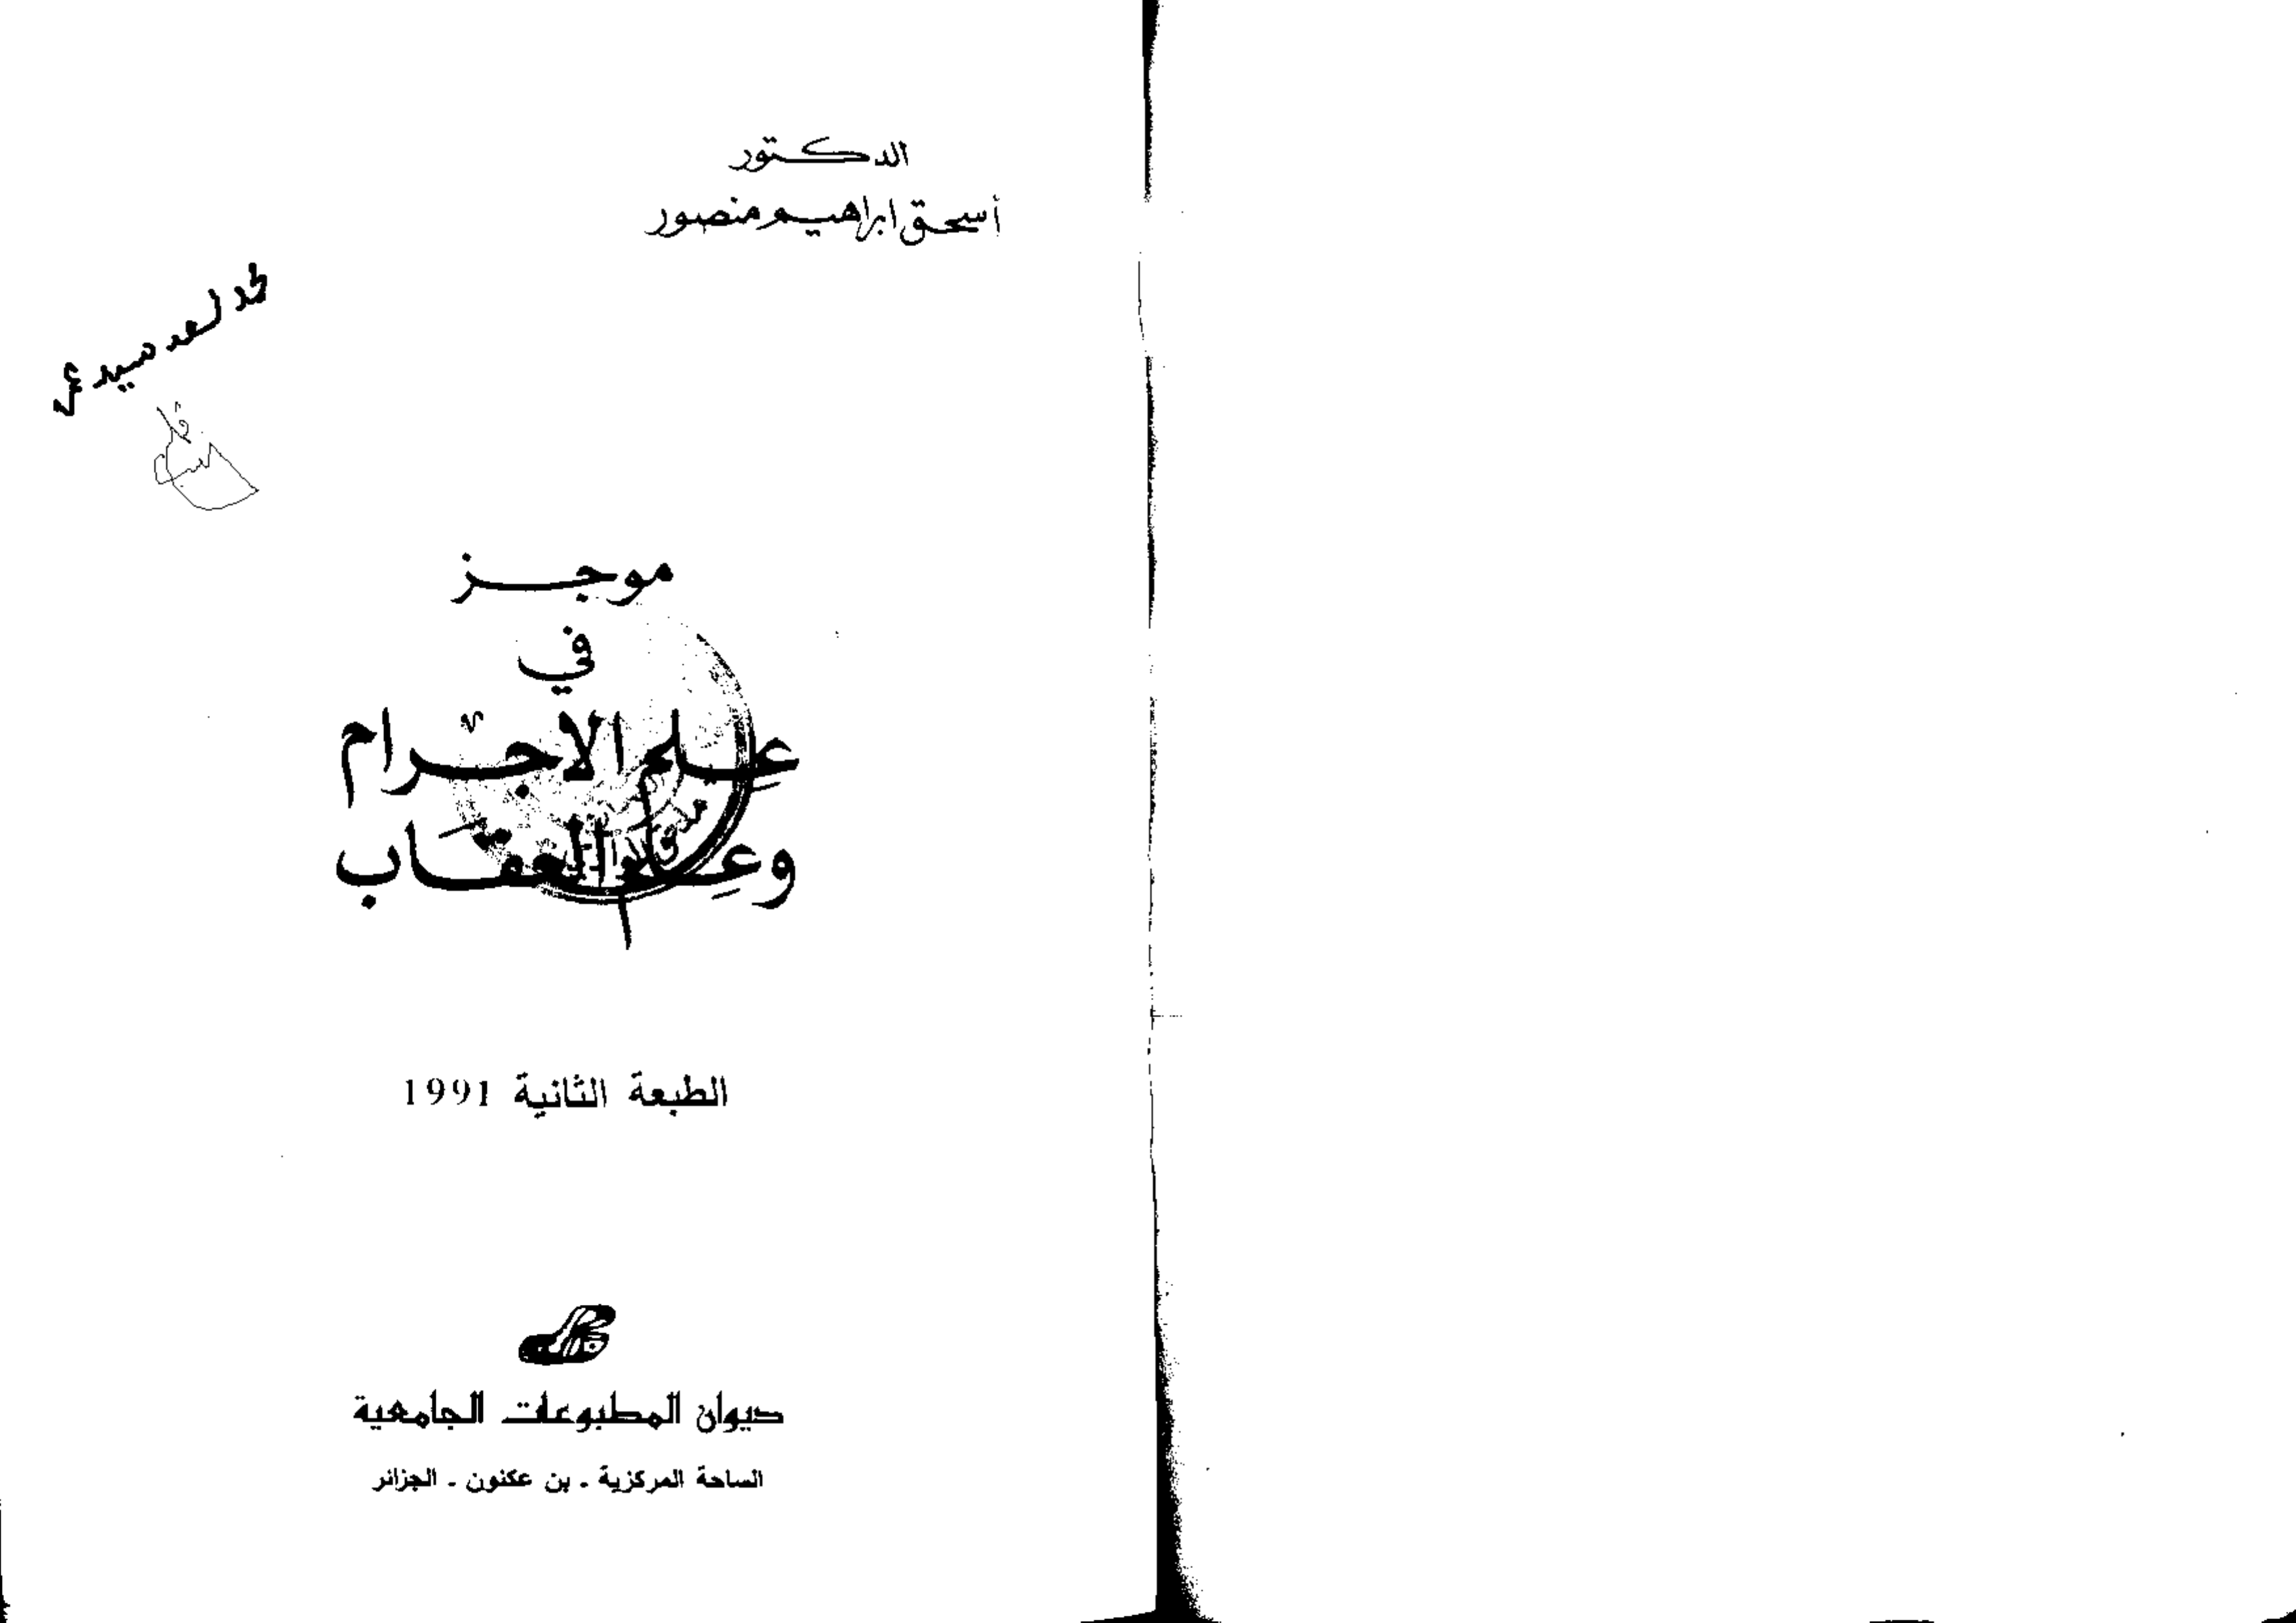 الدكتور
أسحق ابراهيم منصور
موجز
في
علم الاجرام
وعلم العقاب
الطبعة الثانية 1991
ديوان المطبوعات الجامعية
الساحة المركزية - بن عكنون - الجزائر